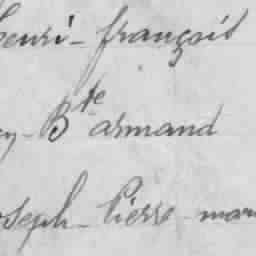 henri - françois
Bte armand
oseph - Pierre - mari